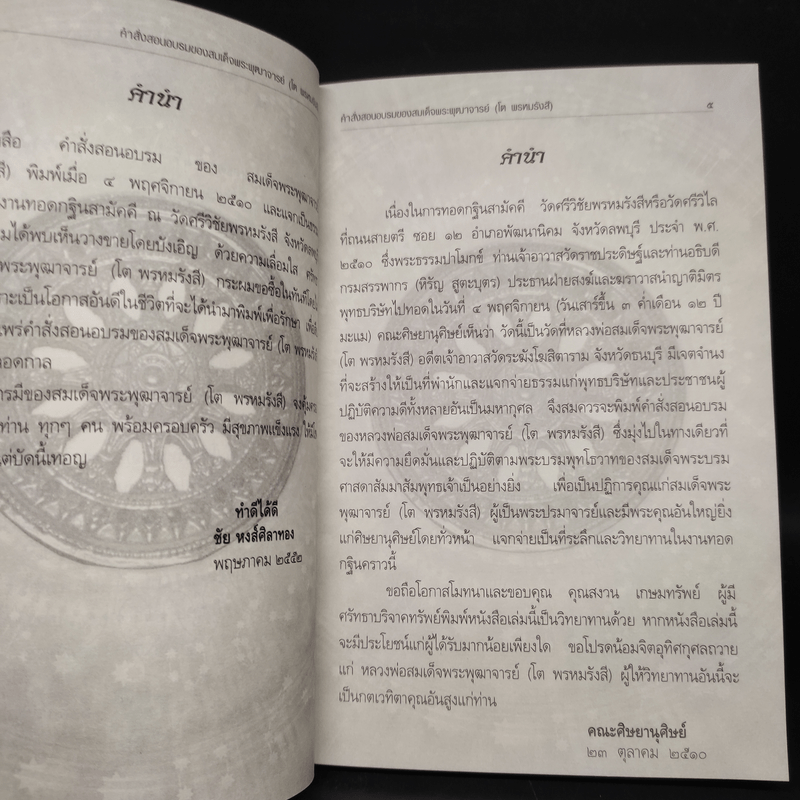 คำสั่งสอนอบรมของสมเด็จพระพุฒาจารย์ (โต
คำนำ
คำสั่งสอนอบรม ของ สมเด็จพระพุฒาจารย์
พิมพ์เมื่อ ๔ พฤศจิกายน ๒๕๑๐ และแจกเป็นธรรม
งานทอดกฐินสามัคคี ณ วัดศรีวิชัยพรหมรังสี จังหวัดลพบุรี
ได้พบเห็นวางขายโดยบังเอิญ ด้วยความเลื่อมใส
พระพุฒาจารย์ (โต พรหมรังสี) กระผมขอซื้อในทันทีโดย
เป็นโอกาสอันดีในชีวิตที่จะได้นำมาพิมพ์เพื่อรักษา
คำสั่งสอนอบรมของสมเด็จพระพุฒาจารย์ (โต พรหมรังสี)
มีของสมเด็จพระพุฒาจารย์ (โต พรหมรังสี)
ท่าน ทุกๆ คน พร้อมครอบครัว มีสุขภาพแข็งแรง
บัดนี้เทอญ
ทำดีได้ดี
ชัย หงส์ศิลาทอง
พฤษภาคม ๒๕๕๒
คำสั่งสอนอบรมของสมเด็จพระพุฒาจารย์ (โต พรหมรังสี) ๕
คำนำ
เนื่องในการทอดกฐินสามัคคี วัดศรีวิชัยพรหมรังสีหรือวัดศรีวิไล
ที่ถนนสายตรี ซอย ๑๒ อำเภอพัฒนานิคม จังหวัดลพบุรี ประจำ พ.ศ.
๒๕๑๐ ซึ่งพระธรรมปาโมกข์ ท่านเจ้าอาวาสวัดราชประดิษฐ์และท่านอธิบดี
กรมสรรพากร (หิรัญ สูตะบุตร) ประธานฝ่ายสงฆ์และฆราวาสนำญาติมิตร
พุทธบริษัทไปทอดในวันที่ ๔ พฤศจิกายน (วันเสาร์ขึ้น ๓ ค่ำเดือน ๑๒ ปี
มะแม) คณะศิษยานุศิษย์เห็นว่า วัดนี้เป็นวัดที่หลวงพ่อสมเด็จพระพุฒาจารย์
(โต พรหมรังสี) อดีตเจ้าอาวาสวัดระฆังโฆสิตาราม จังหวัดธนบุรี มีเจตจำนง
ที่จะสร้างให้เป็นที่พำนักและแจกจ่ายธรรมแก่พุทธบริษัทและประชาชนผู้
ปฏิบัติความดีทั้งหลายอันเป็นมหากุศล จึงสมควรจะพิมพ์คำสั่งสอนอบรม
ของหลวงพ่อสมเด็จพระพุฒาจารย์ (โต พรหมรังสี) ซึ่งมุ่งไปในทางเดียวที่
จะให้มีความยึดมั่นและปฏิบัติตามพระบรมพุทโธวาทของสมเด็จพระบรม
ศาสดาสัมมาสัมพุทธเจ้าเป็นอย่างยิ่ง เพื่อเป็นปฏิการคุณแก่สมเด็จพระ
พุฒาจารย์ (โต พรหมรังสี) ผู้เป็นพระปรมาจารย์และมีพระคุณอันใหญ่ยิ่ง
แก่ศิษยานุศิษย์โดยทั่วหน้า แจกจ่ายเป็นที่ระลึกและวิทยาทานในงานทอด
กฐินคราวนี้
ขอถือโอกาสโมทนาและขอบคุณ คุณสงวน เกษมทรัพย์ ผู้มี
ศรัทธาบริจาคทรัพย์พิมพ์หนังสือเล่มนี้เป็นวิทยาทานด้วย หากหนังสือเล่มนี้
จะมีประโยชน์แก่ผู้ได้รับมากน้อยเพียงใด ขอโปรดน้อมจิตอุทิศกุศลถวาย
แก่ หลวงพ่อสมเด็จพระพุฒาจารย์ (โต พรหมรังสี) ผู้ให้วิทยาทานอันนี้จะ
เป็นกตเวทิตาคุณอันสูงแก่ท่าน
คณะศิษยานุศิษย์
๒๓ ตุลาคม ๒๕๑๐